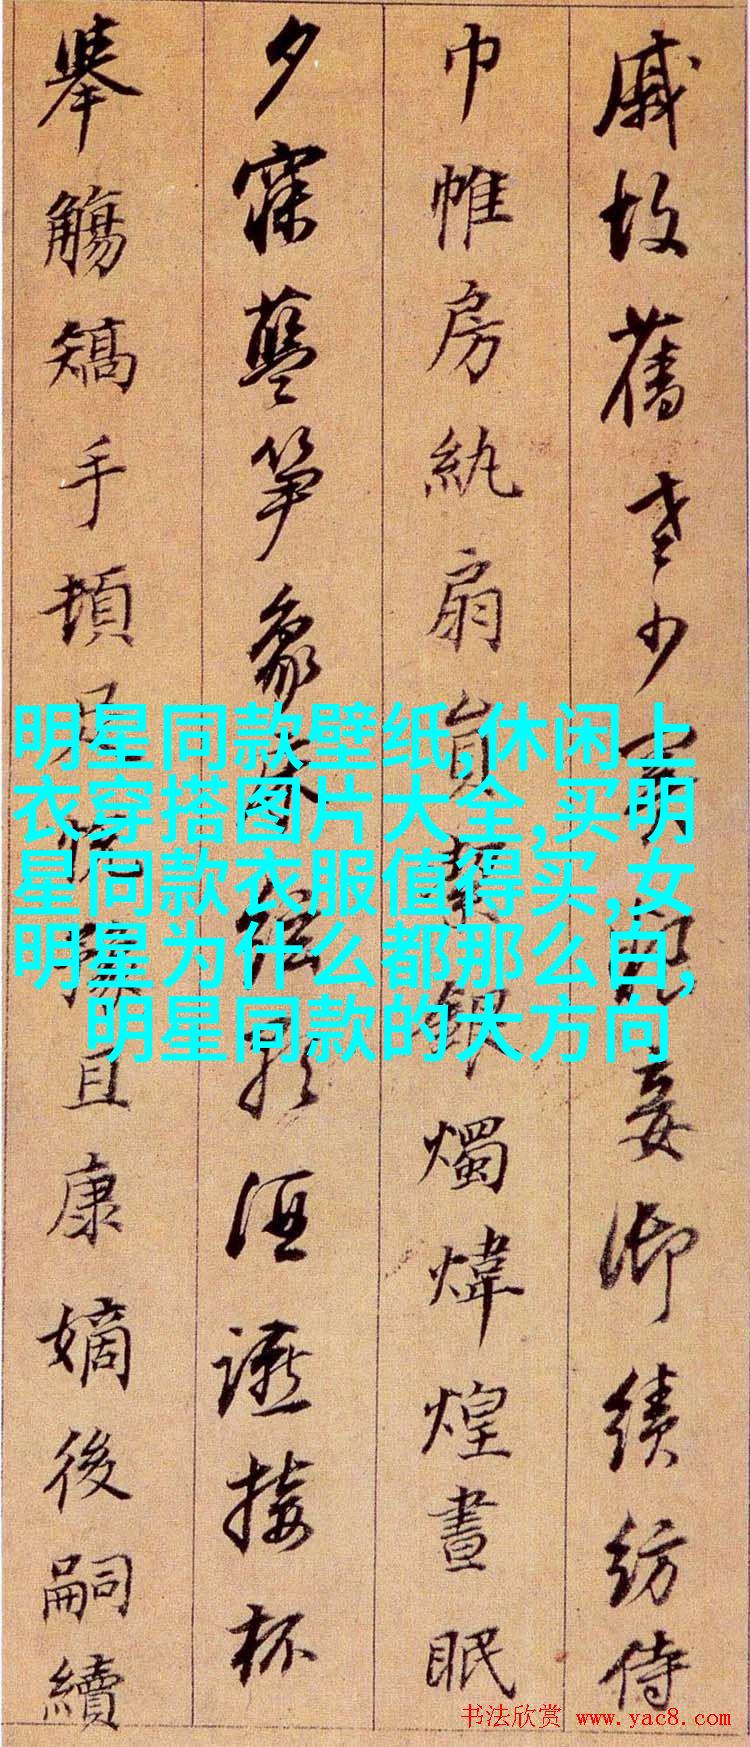 戚故舊老少異粮妾御績紡侍
巾帷房紈扇員絜銀燭煒煌晝眠
夕寐藍笋象床弦歌酒讌接杯
舉觴矯手頓足悅豫且康嫡後嗣續
明星同款壁纸,休闲上
衣穿搭图片大全,买明
星同款衣服值得买,女
明星为什么都那么自,
明星同款的大方向
书法欣赏 www.yac8.com